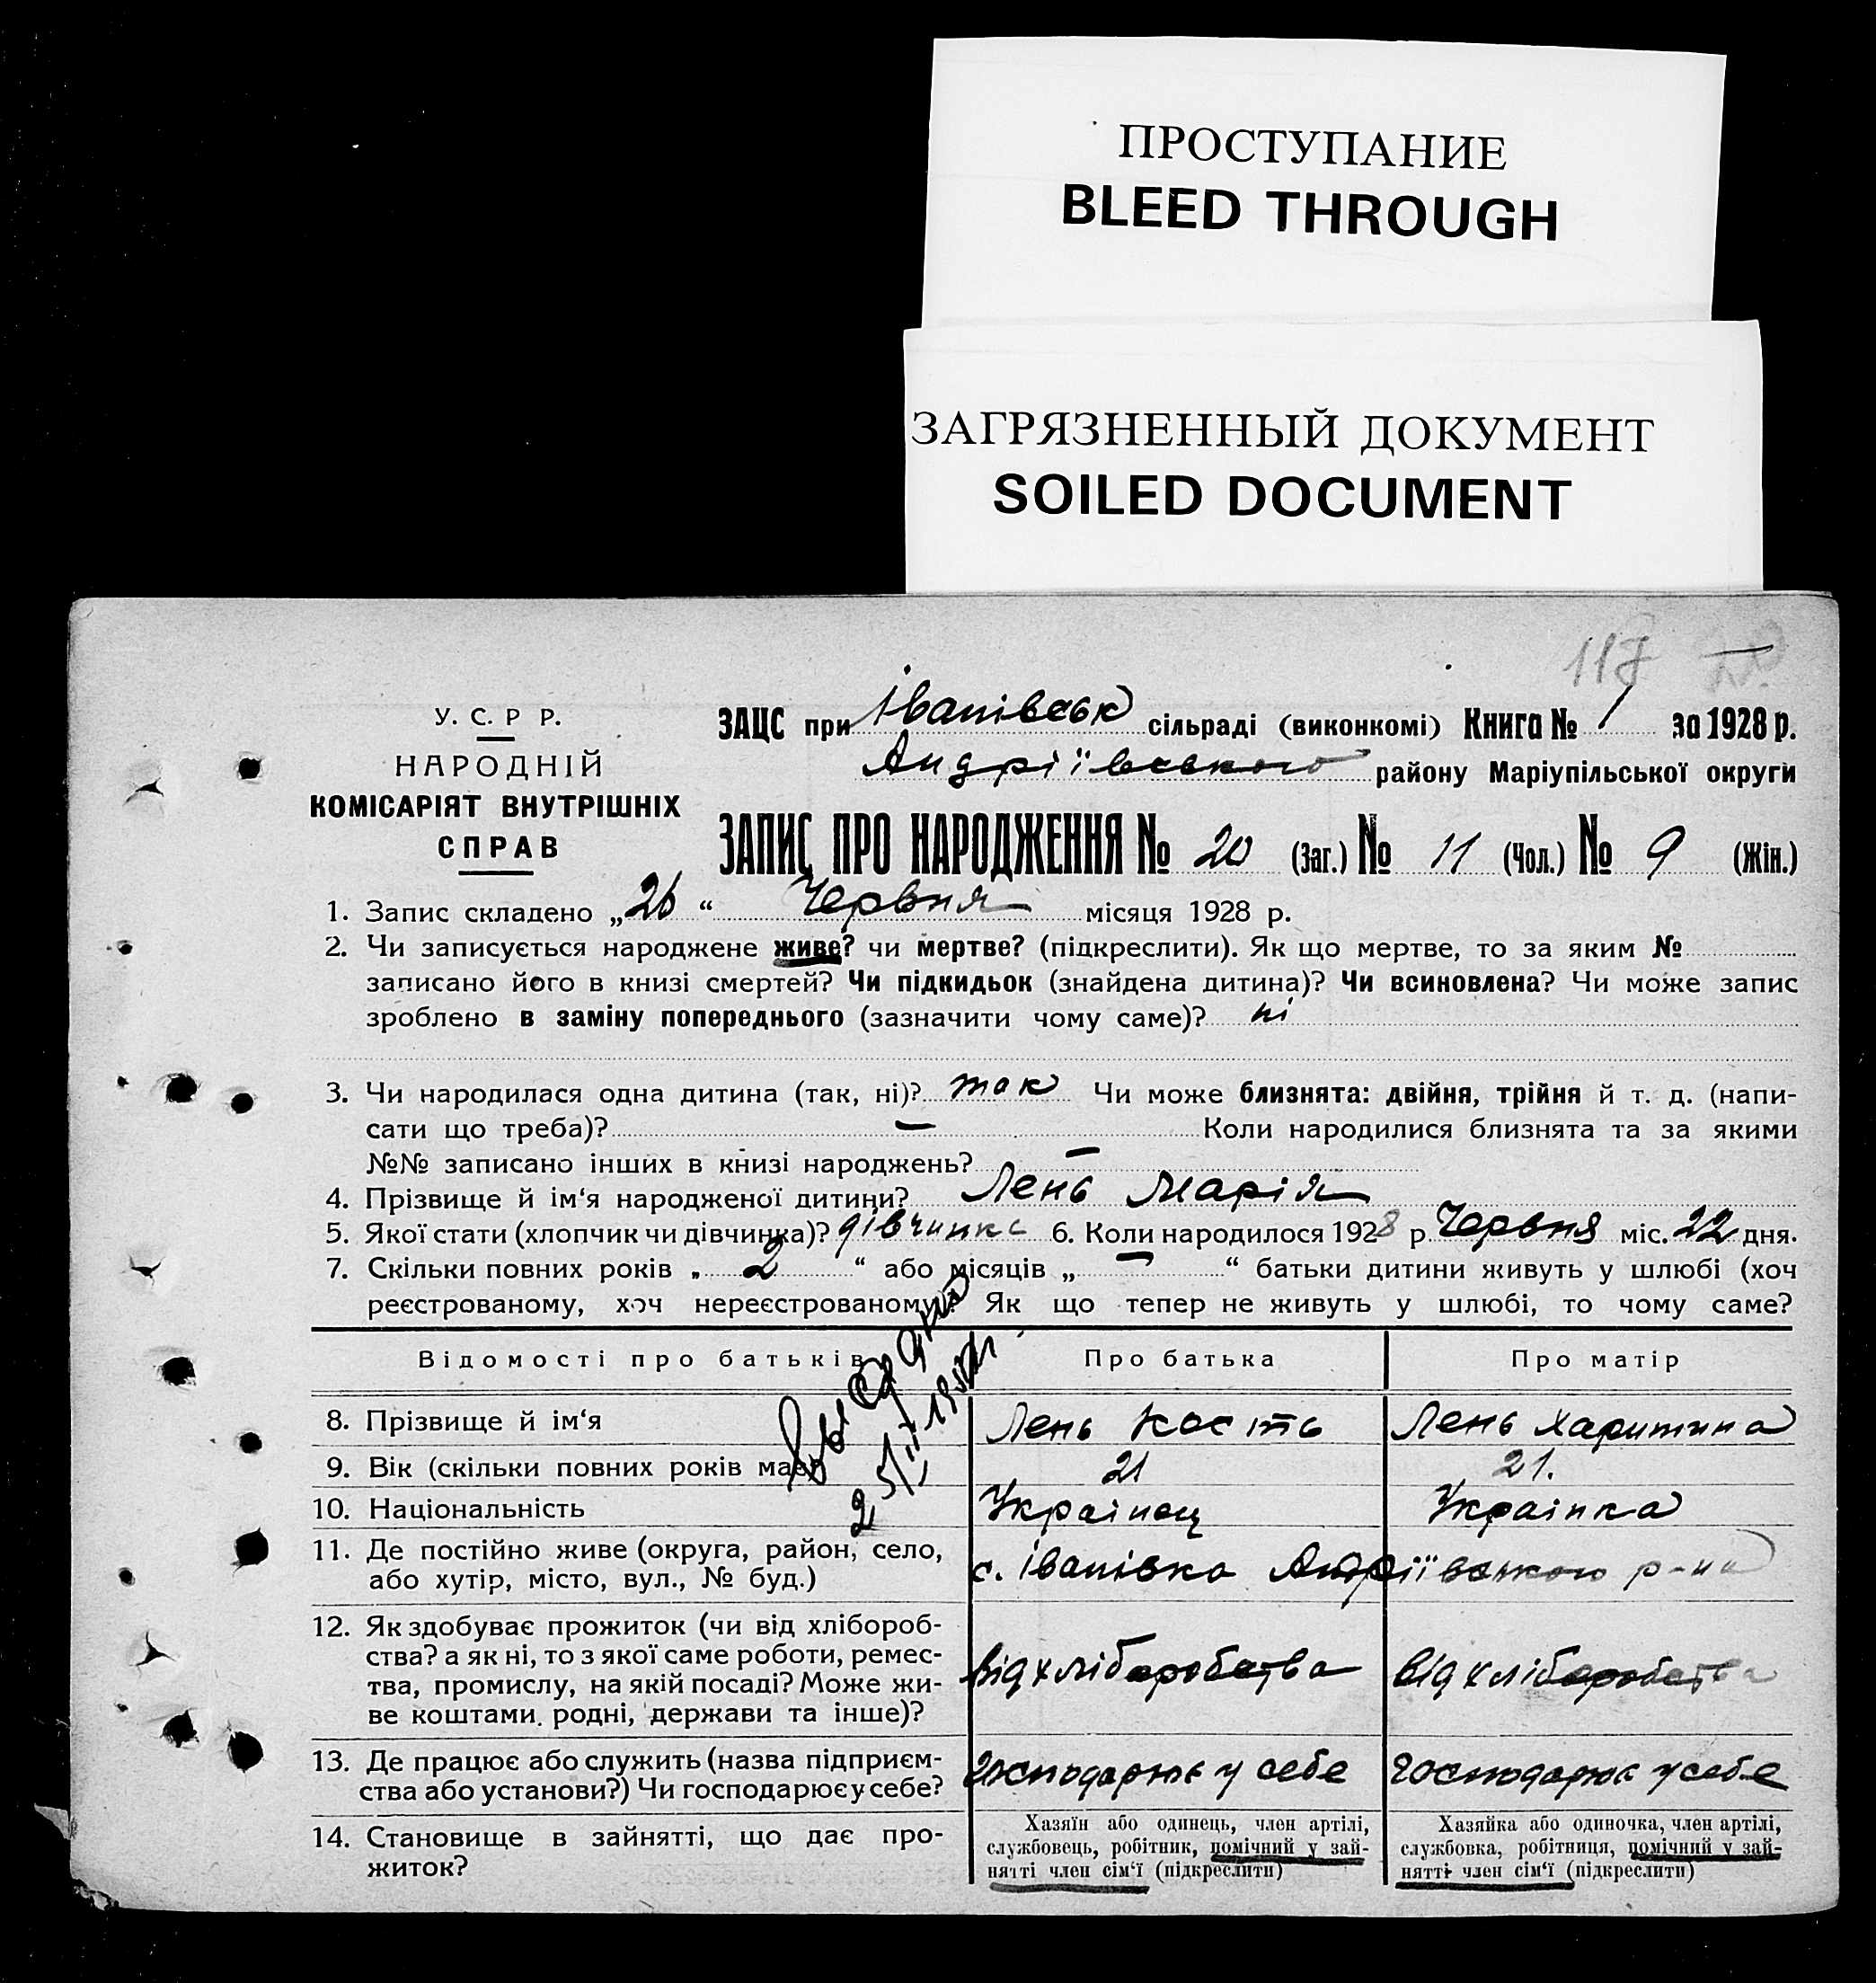 ПРОСТУПАНИЕ
BLEED THROUGH
ЗАГРЯЗНЕННЫЙ ДОКУМЕНТ
SOILED DOCUMENT
117
У. С. Р Р.
НАРОДНІЙ
КОМІСАРІЯТ ВНУТРІШНІХ
СПРАВ
ЗАЦС при Іванівськ сільраді (виконкомі) Книга № 1 за 1928 р.
Андріївського району Маріупільської округи
ЗАПИС ПРО НАРОДЖЕННЯ № 20 (Заг.) № 11 (Чол.) № 9 (Жін.)
1. Запис складено „26“ Червня місяця 1928 р.
2. Чи записується народжене живе? чи мертве? (підкреслити). Як що мертве, то за яким №
записано його в книзі смертей? Чи підкидьок (знайдена дитина)? Чи всиновлена? Чи може запис
зроблено в заміну попереднього (зазначити чому саме)? ні
3. Чи народилася одна дитина (так, ні)? так Чи може близнята: двійня, трійня й т. д. (напи-
сати що треба)? — Коли народилися близнята та за якими
№№ записано інших в книзі народжень? —
4. Прізвище й ім‘я народженої дитини? Лень Марія
5. Якої стати (хлопчик чи дівчинка)? дівчинка 6. Коли народилося 1928 р. Червня міс. 22 дня.
7. Скільки повних років „ 2 “ або місяців „ — “ батьки дитини живуть у шлюбі (хоч
реєстрованому, хоч нереєстрованому)? Як що тепер не живуть у шлюбі, то чому саме?
Відомості про батьків Про батька Про матір
8. Прізвище й ім‘я Лень Кость Лень Харитина
9. Вік (скільки повних років має) 21 21.
10. Національність Українец Українка
11. Де постійно живе (округа, район, село,
або хутір, місто, вул., № буд.) с. Іванівка Андріївського р-на
12. Як здобуває прожиток (чи від хлібороб-
ства? а як ні, то з якої саме роботи, ремес-
тва, промислу, на якій посаді? Може жи-
ве коштами родні, держави та інше)? від хліборобства від хліборобства
13. Де працює або служить (назва підприєм-
ства або установи?) Чи господарює у себе? господарює у себе господарює у себе
14. Становище в зайнятті, що дає про-
житок?
Хазяїн або одинець, член артілі,
службовець, робітник, помічний у зай-
нятті член сім‘ї (підкреслити)
Хазяйка або одиночка, член артілі,
службовка, робітниця, помічний у зай-
нятті член сім‘ї (підкреслити)